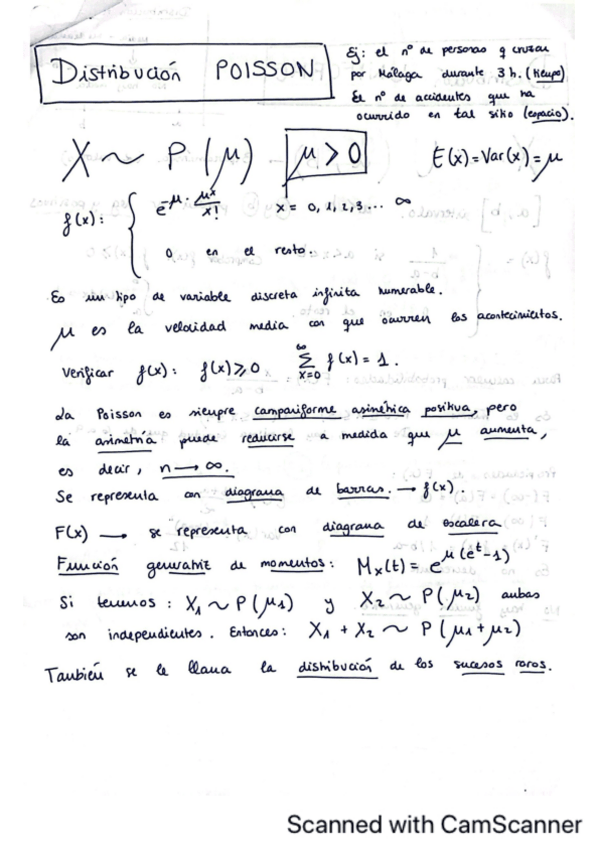 Distribución POISSON
Ej: el nº de personas q cruzan
por Málaga durante 3 h. (tiempo)
El nº de accidentes que ha
ocurrido en tal sitio (espacio).
X ~ P(μ) μ > 0 E(x) = Var(x) = μ
f(x): { e^-μ · μ^x/x! x = 0, 1, 2, 3... ∞
0 en el resto.
Es un tipo de variable discreta infinita numerable.
μ es la velocidad media con que ocurren los acontecimientos.
Verificar f(x): f(x) ≥ 0 ∑_{x=0}^{∞} f(x) = 1.
La Poisson es siempre campaniforme asimétrica positiva, pero
la asimetría puede reducirse a medida que μ aumenta,
es decir, n → ∞.
Se representa con diagrama de barras. → f(x).
F(x) → se representa con diagrama de escalera
Función generatriz de momentos: M_x(t) = e^{μ(e^t-1)}
Si tenemos: X₁ ~ P(μ₁) y X₂ ~ P(μ₂) ambas
son independientes. Entonces: X₁ + X₂ ~ P(μ₁ + μ₂)
También se le llama la distribución de los sucesos raros.
Scanned with CamScanner